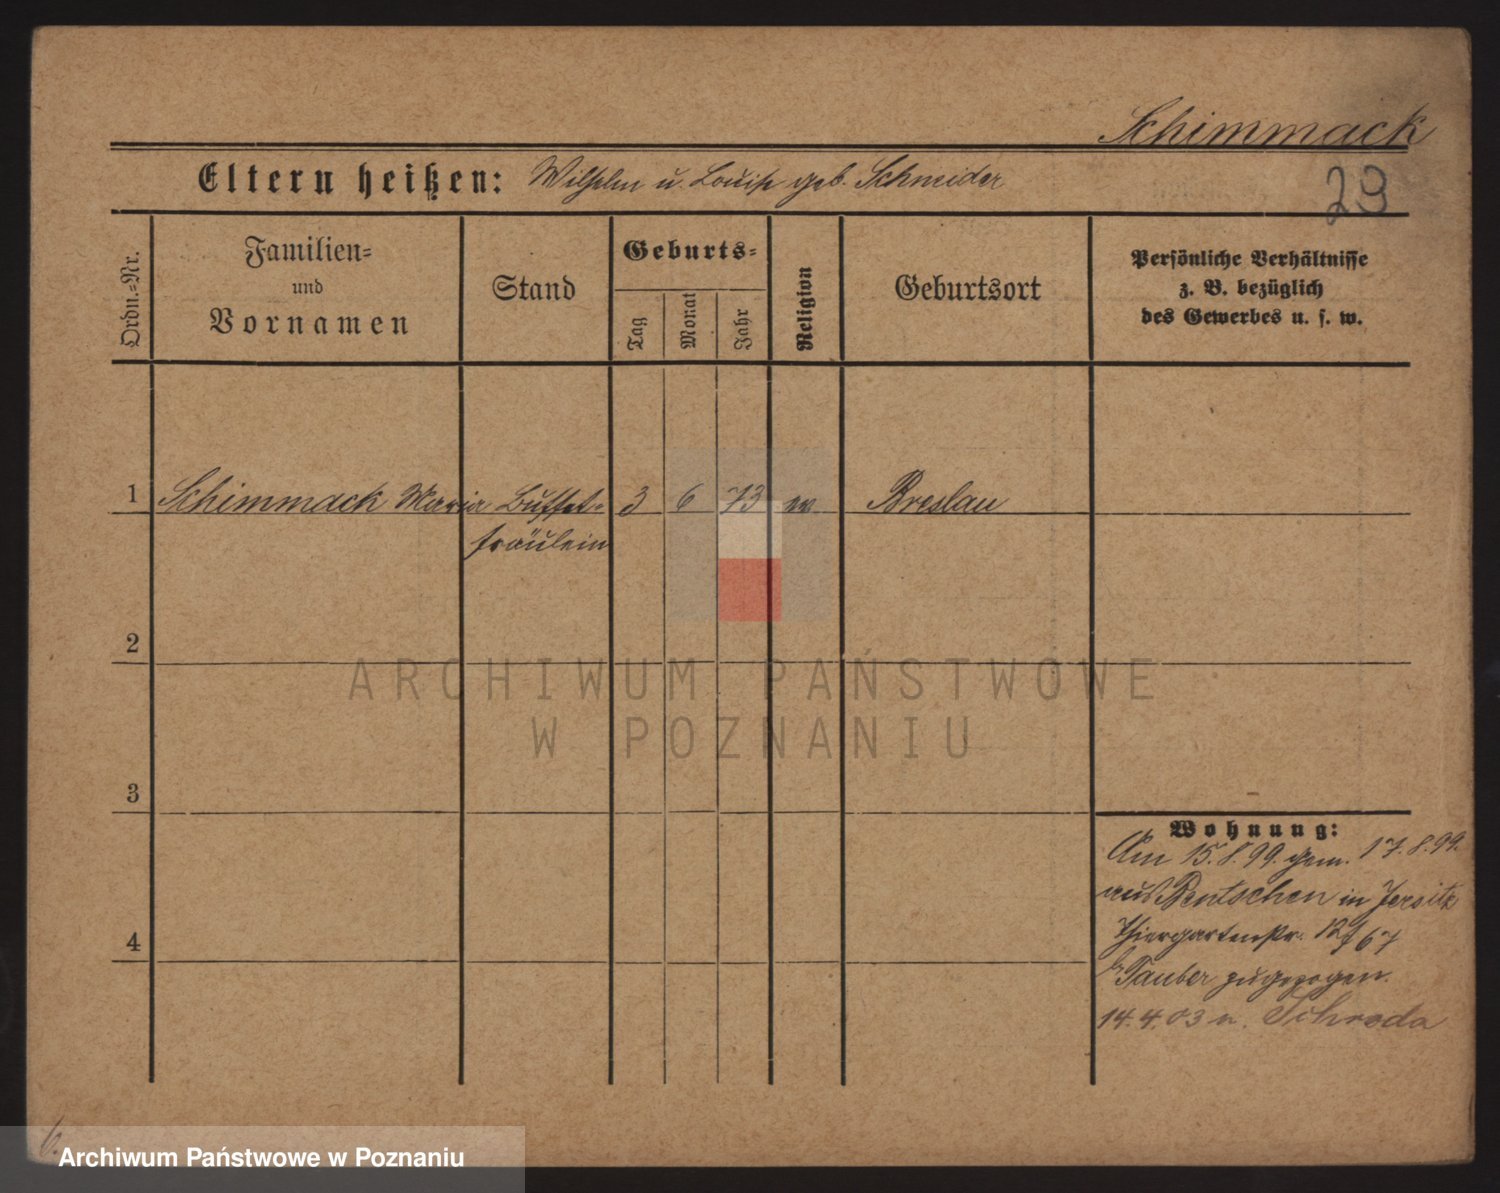 Schimmack
Eltern heißen: Wilhelm u. Louise geb. Schneider
29
Ordn.-Nr.
Familien-
und
Vornamen
Stand
Geburts-
Tag
Monat
Jahr
Religion
Geburtsort
Persönliche Verhältnisse
z. B. bezüglich
des Gewerbes u. s. w.
1 Schimmack Maria Buffet- 3 6 73 ev Breslau
fräulein
2
3
4
ARCHIWUM PAŃSTWOWE
W POZNANIU
Wohnung:
Am 15.8.99. gem. 17.8.99.
aus Bentschen in Jersitz
Thiergartenstr.
Tauber zugezogen.
14.4.03 n. Schroda
6.
Archiwum Państwowe w Poznaniu